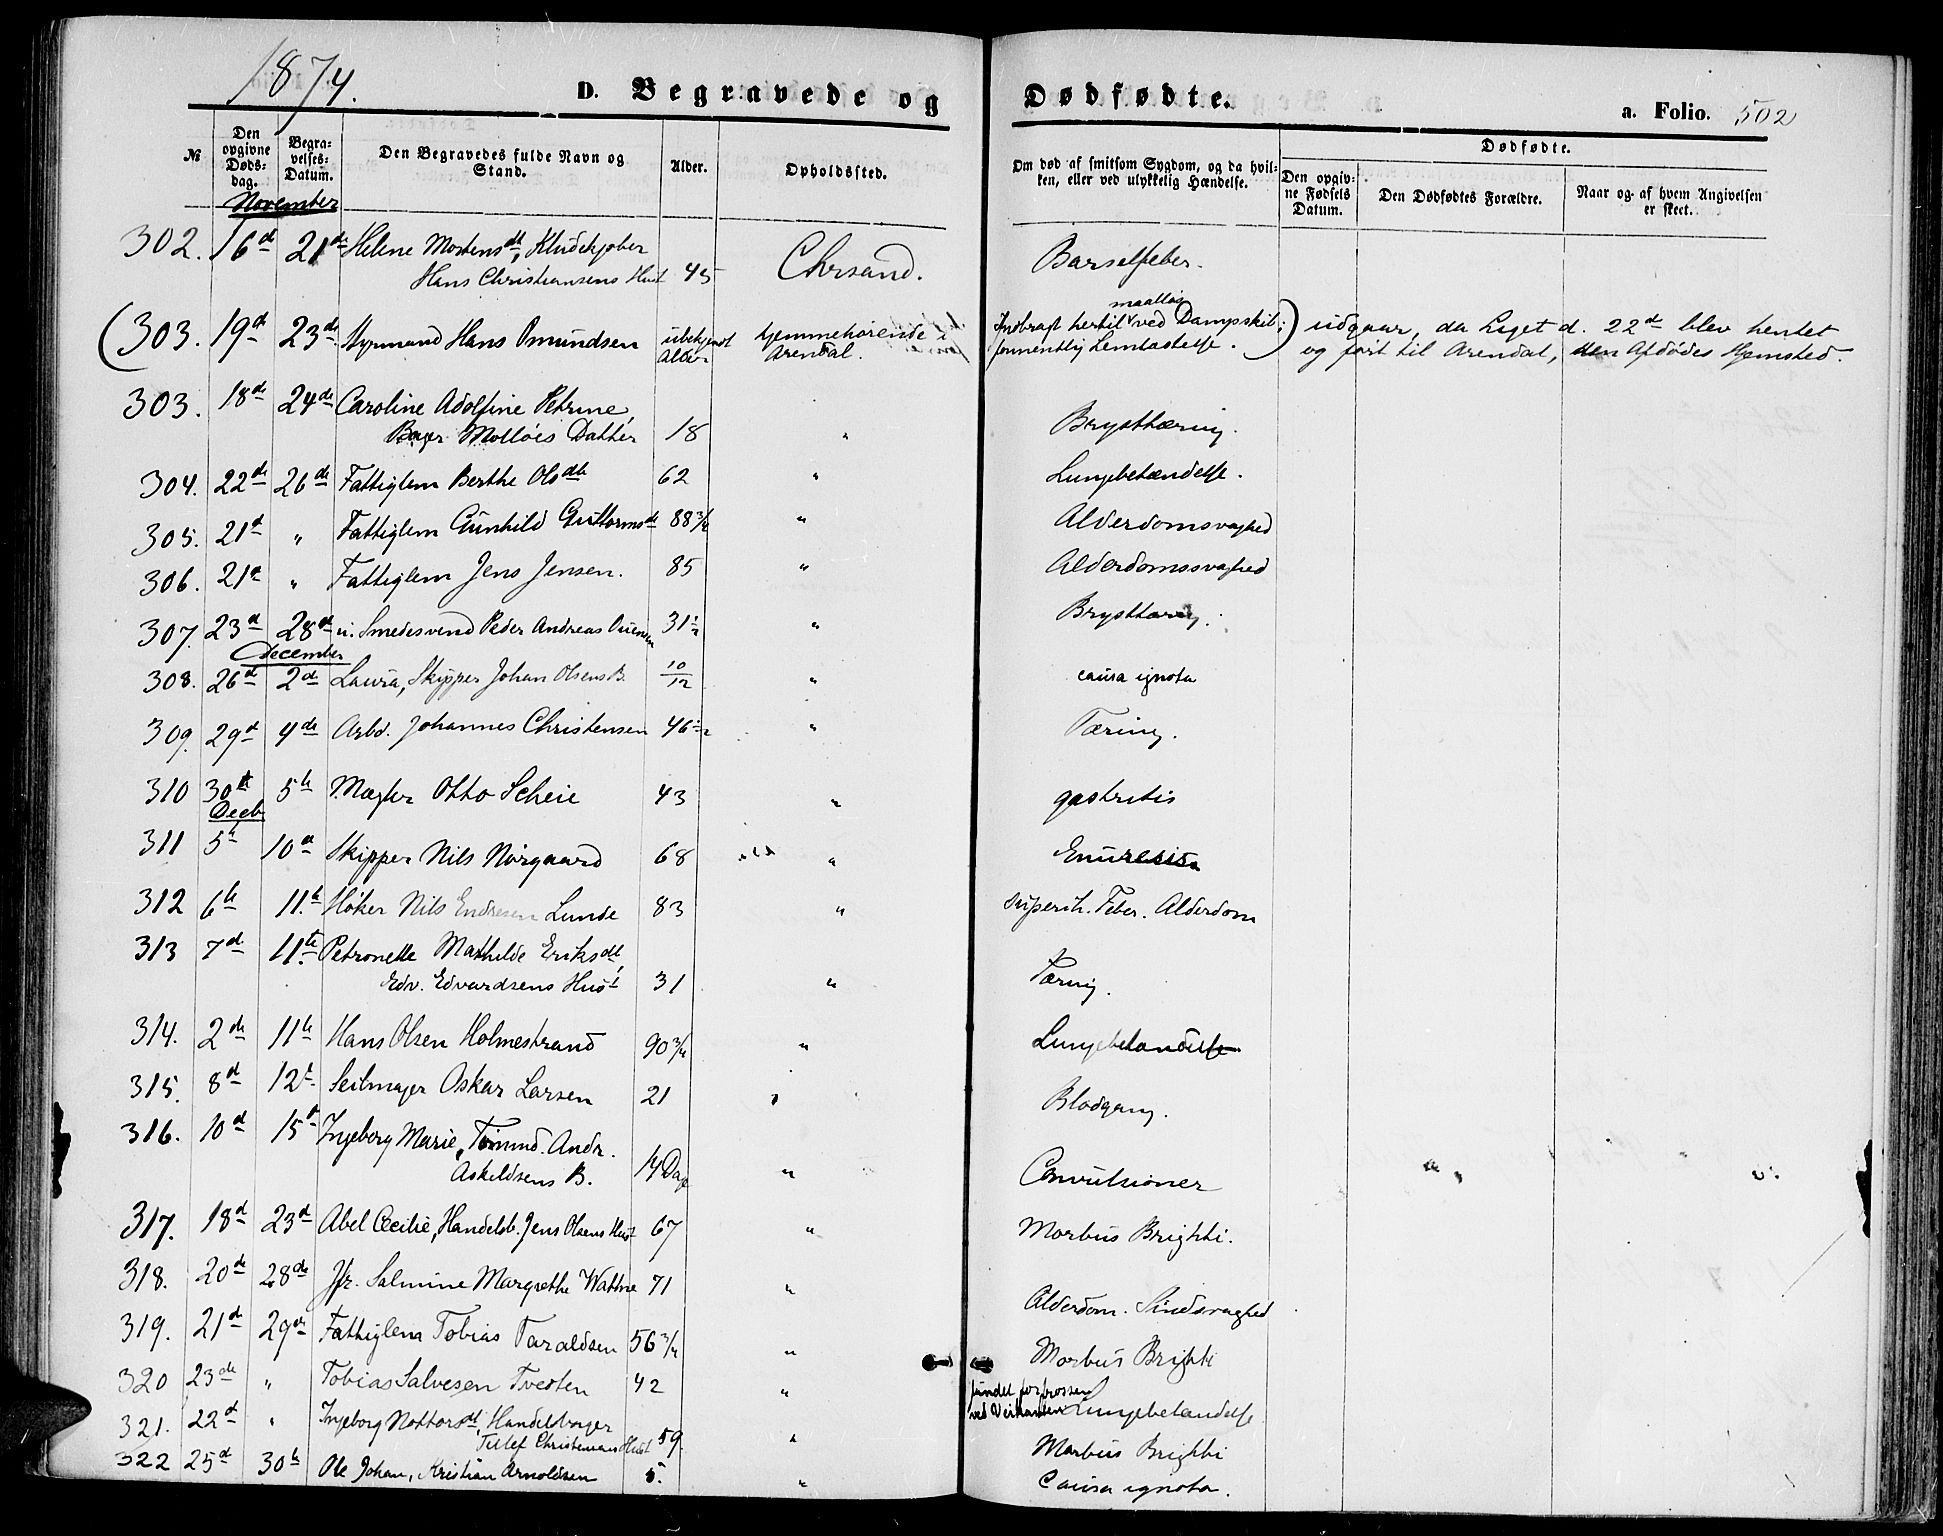 1874.
D. Begravede og Dødfødte.
a. Folio. 502
№
Den opgivne Døds-dag.
Begra-velses-Datum.
Den Begravedes fulde Navn og Stand.
Alder.
Opholdssted.
Om død af smitsom Sygdom, og da hvil-ken, eller ved ulykkelig Hændelse.
Dødfødte.
Den opgiv-ne Fødsels Datum.
Den Dødfødtes Forældre.
Naar og af hvem Angivelsen er skeet.
November
302. 16d 21de Helene Mortensdt, Kludekjøber
Hans Christiansens Hust 45 Chrsand. Barselfeber.
(303. 19d 23de Styrmand Hans Omundsen ubekjendt Alder hjemmehørende i Arendal. Indbragt hertil maalløs ved Dampskib; formentlig Lemlæstelse.) udgaar, da Liget d. 22de blev hentet
og ført til Arendal, den Afdødes Hjemsted.
303. 18de 24de Caroline Adolfine Petrine,
Bager Molløes Datter 18 " Brysttæring.
304. 22de 26de Fattiglem Berthe Olsdtr 62 " Lungebetændelse.
305. 21d " Fattiglem Gunhild Guttormsdt 88 3/4 " Alderdomsvaghed
306. 21d " Fattiglem Jens Jensen. 85 " Alderdomssvaghed
307. 23d 28de u. Smedesvend Peder Andreas 31 1/2 " Brysttæring.
December
308. 26d 2de Laura, Skipper Johan Olsens B. 10/12 " causa ignota
309. 29d 4de Arbd. Johannes Christensen 46 1/2 " Tæring.
310 30te 5te Mægler Otto Scheie 43 " gastritis
Decb
311 5te 10de Skipper Nils Nørgaard 68 " Enuresis
312 6te 11te Høker Nils Endresen Lunde 83 " Feber. Alderdom
313 7d 11te Petronelle Mathilde Eriksdt,
Edv. Edvardsens Hust 31 " Tæring.
314. 2de 11te Hans Olsen Holmestrand 90 3/4 " Lungebetændelse
315. 8d 12t Seilmager Oskar Larsen 21 " Blodgang.
316. 10d 15de Ingeborg Marie, Tømmd. Andr.
Askildsens B. 14 Dage " Convulsioner
317. 18d 23d Abel Cecilie, Handelsb. Jens Olsens Hust 67 " Morbus Brightii.
318. 20de 28de Jfr. Salmine Margrethe Wattne 71 " Alderdom. Sindssvaghed
319. 21d 29de Fattiglem Tobias Taraldsen 56 3/4 " Morbus Brightii
320 23de " Tobias Salvesen Tveten 42 " fundet forfrossen
ved Veikanten Lungebetændelse
321. 22d " Ingeborg Nottorsdt, Handelsborger
Tellef Christensens Hust 59 " Morbus Brightii
322 25d 30te Ole Johan, Kristian Arnoldsen 5. " Causa ignota.